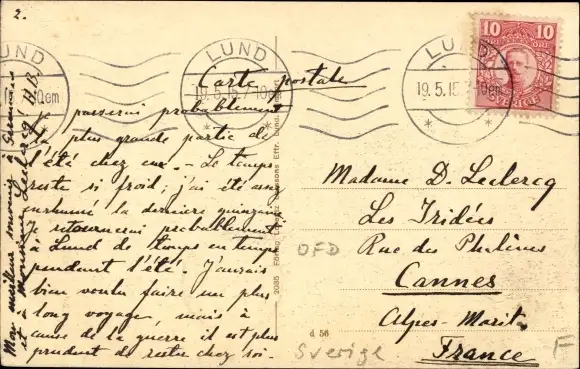 2.
LUND
LUND
LUND
19.5.15.
19.5.15
10em
10 10
SVERIGE
Carte postale
passerai probablement
la plus grande partie de
l'été chez eux. – Le temps
reste si froid; j'ai été assez
enrhumé la dernière quinzaine.
Je retournerai probablement
à Lund de temps en temps
pendant l'été. J'aurais
bien voulu faire un plus
long voyage, mais à
cause de la guerre il est plus
prudent de rester chez soi.-
Mon meilleur souvenir à
Monsieur Leclercq! H.B.
2035
Madame D. Leclercq
Les Iridées
Rue des
Cannes
Alpes-Marit.
France
OFD
d 56
Sverige
F